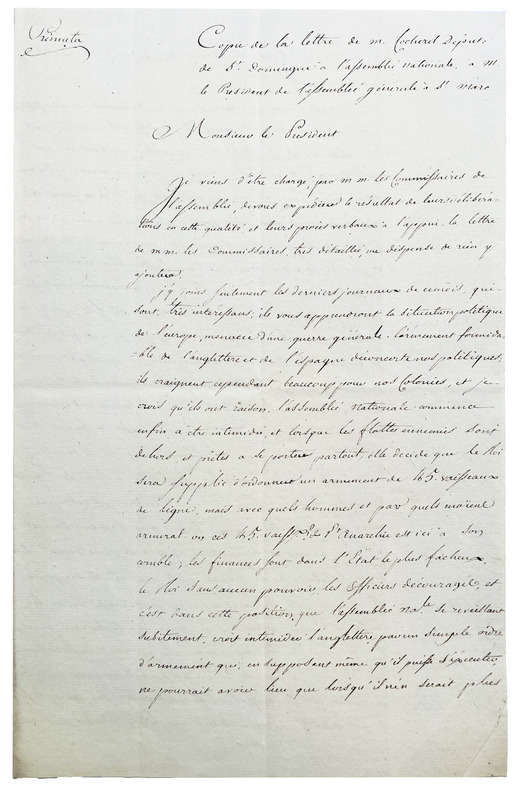 Copie de la lettre de m. Cocherel Député
de St. Domingue à l'assemblée nationale, a M.
le President de l'assemblée generale à St. Marc
Monsieur le Président
Je viens d'être chargé, par m m les Commissaires de
l'assemblée, de vous expédier le résultat de leurs délibéra-
tions en cette qualité, et leurs procès verbaux à l'appui. la lettre
de m m. les Commissaires, très détaillée, me dispense de rien y
ajouter.
j'y joins seulement les derniers journaux de ce mois, qui
sont très interessans; ils vous apprendront la situation politique
de l'europe, menacée d'une guerre générale. l'armement formida-
ble de l'angletterre et de l'espagne déconcerte nos politiques;
ils craignent cependant beaucoup pour nos Colonies, et je
crois qu'ils ont raison. l'assemblée nationale commence
enfin à être intimidée, et lorsque les flottes ennemies sont
dehors et prêtes a se porter partout, elle décide que le Roi
sera supplié d'ordonner un armement de 45. vaisseaux
de ligne, mais avec quels hommes et par quels moiens
armerat on ces 45. vaissx. l'Anarchie est ici à son
comble; les finances sont dans l'Etat le plus facheux,
le Roi sans aucun pouvoir, les officiers decouragés, et
c'est dans cette position, que l'assemblée nale. se reveillant
subitement, croit intimider l'angletterre par un simple ordre
d'armement qui, en supposant même qu'il puisse s'exécuter,
ne pourrait avoir lieu que lorsqu'il n'en serait plus